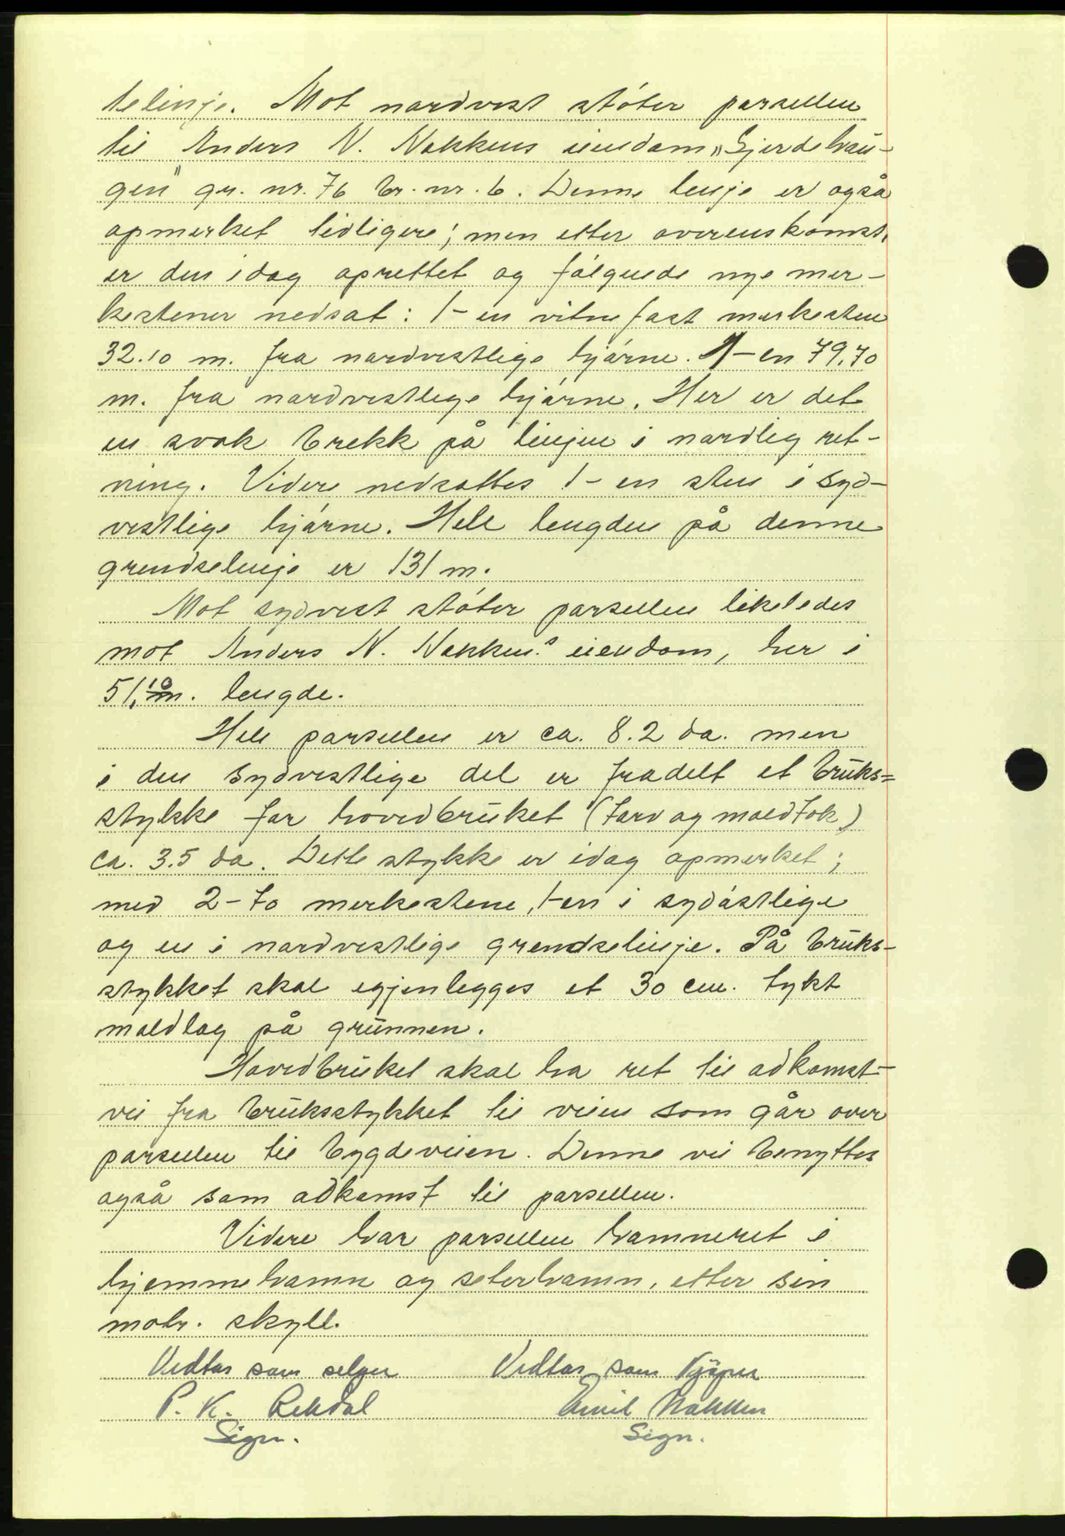 telinje. Mot nordvest støter parsellen
til Anders N. Nakkens eiendom „Gjerdehau-
gen" gr. nr. 76 br. nr. 6. Denne linje er også
opmerket tidligere; men etter overenskomst,
er den idag oprettet og følgende nye mer-
kestener nedsat: 1- en vitnefast merkesten
32.10 m. fra nordvestlige hjørne. 1- en 79,70
m. fra nordvestlige hjørne. Her er det
en svak brekk på linjen i nordlig ret-
ning. Videre nedsattes 1- en sten i syd-
vestlige hjørne. Hele lengden på denne
grendselinje er 131 m.
Mot sydvest støter parsellen likeledes
mot Anders N. Nakken.s eiendom, her i
51,10 m. lengde.
Hele parsellen er ca. 8.2 da. men
i den sydvestlige del er fradelt et bruks=
stykke for hovedbruket (torv og moldtok)
ca. 3.5 da. Dette stykke er idag opmerket;
med 2- to merkestene, 1- en i sydøstlige
og en i nordvestlige grendselinje. På bruks-
stykket skal igjenlegges et 30 cm. tykt
moldlag på grunnen.
Hovedbruket skal ha ret til adkomst-
vei fra bruksstykket til veien som går over
parsellen til bygdeveien. Denne vei benyttes
også som adkomst til parsellen.
Videre har parsellen hamneret i
hjemmehamn og seterhamn, etter sin
matr. skyll.
Vedtas som selger Vedtas som kjøper
P. K. Rekdal Emil Nakken
Sign. Sign.